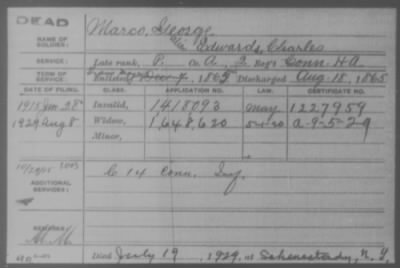 DEAD
NAME OF SOLDIER: Marco, George
alias Edwards, Charles
SERVICE: Late rank, P. Co. A, 2 Reg't Conn. H.A.
TERM OF SERVICE: Enlisted 1863 Discharged Aug. 18, 1865
DATE OF FILING. CLASS. APPLICATION NO. LAW. CERTIFICATE NO.
1915 Jan 28 Invalid, 1418093 May 1227959
1929 Aug 8 Widow, 1,648,620 5-1-20 A-9-5-2-9
Minor,
ADDITIONAL SERVICES: C 14 Conn. Inf.
REMARKS: M.M.
Died July 19, 1929, at Schenectady, N.Y.